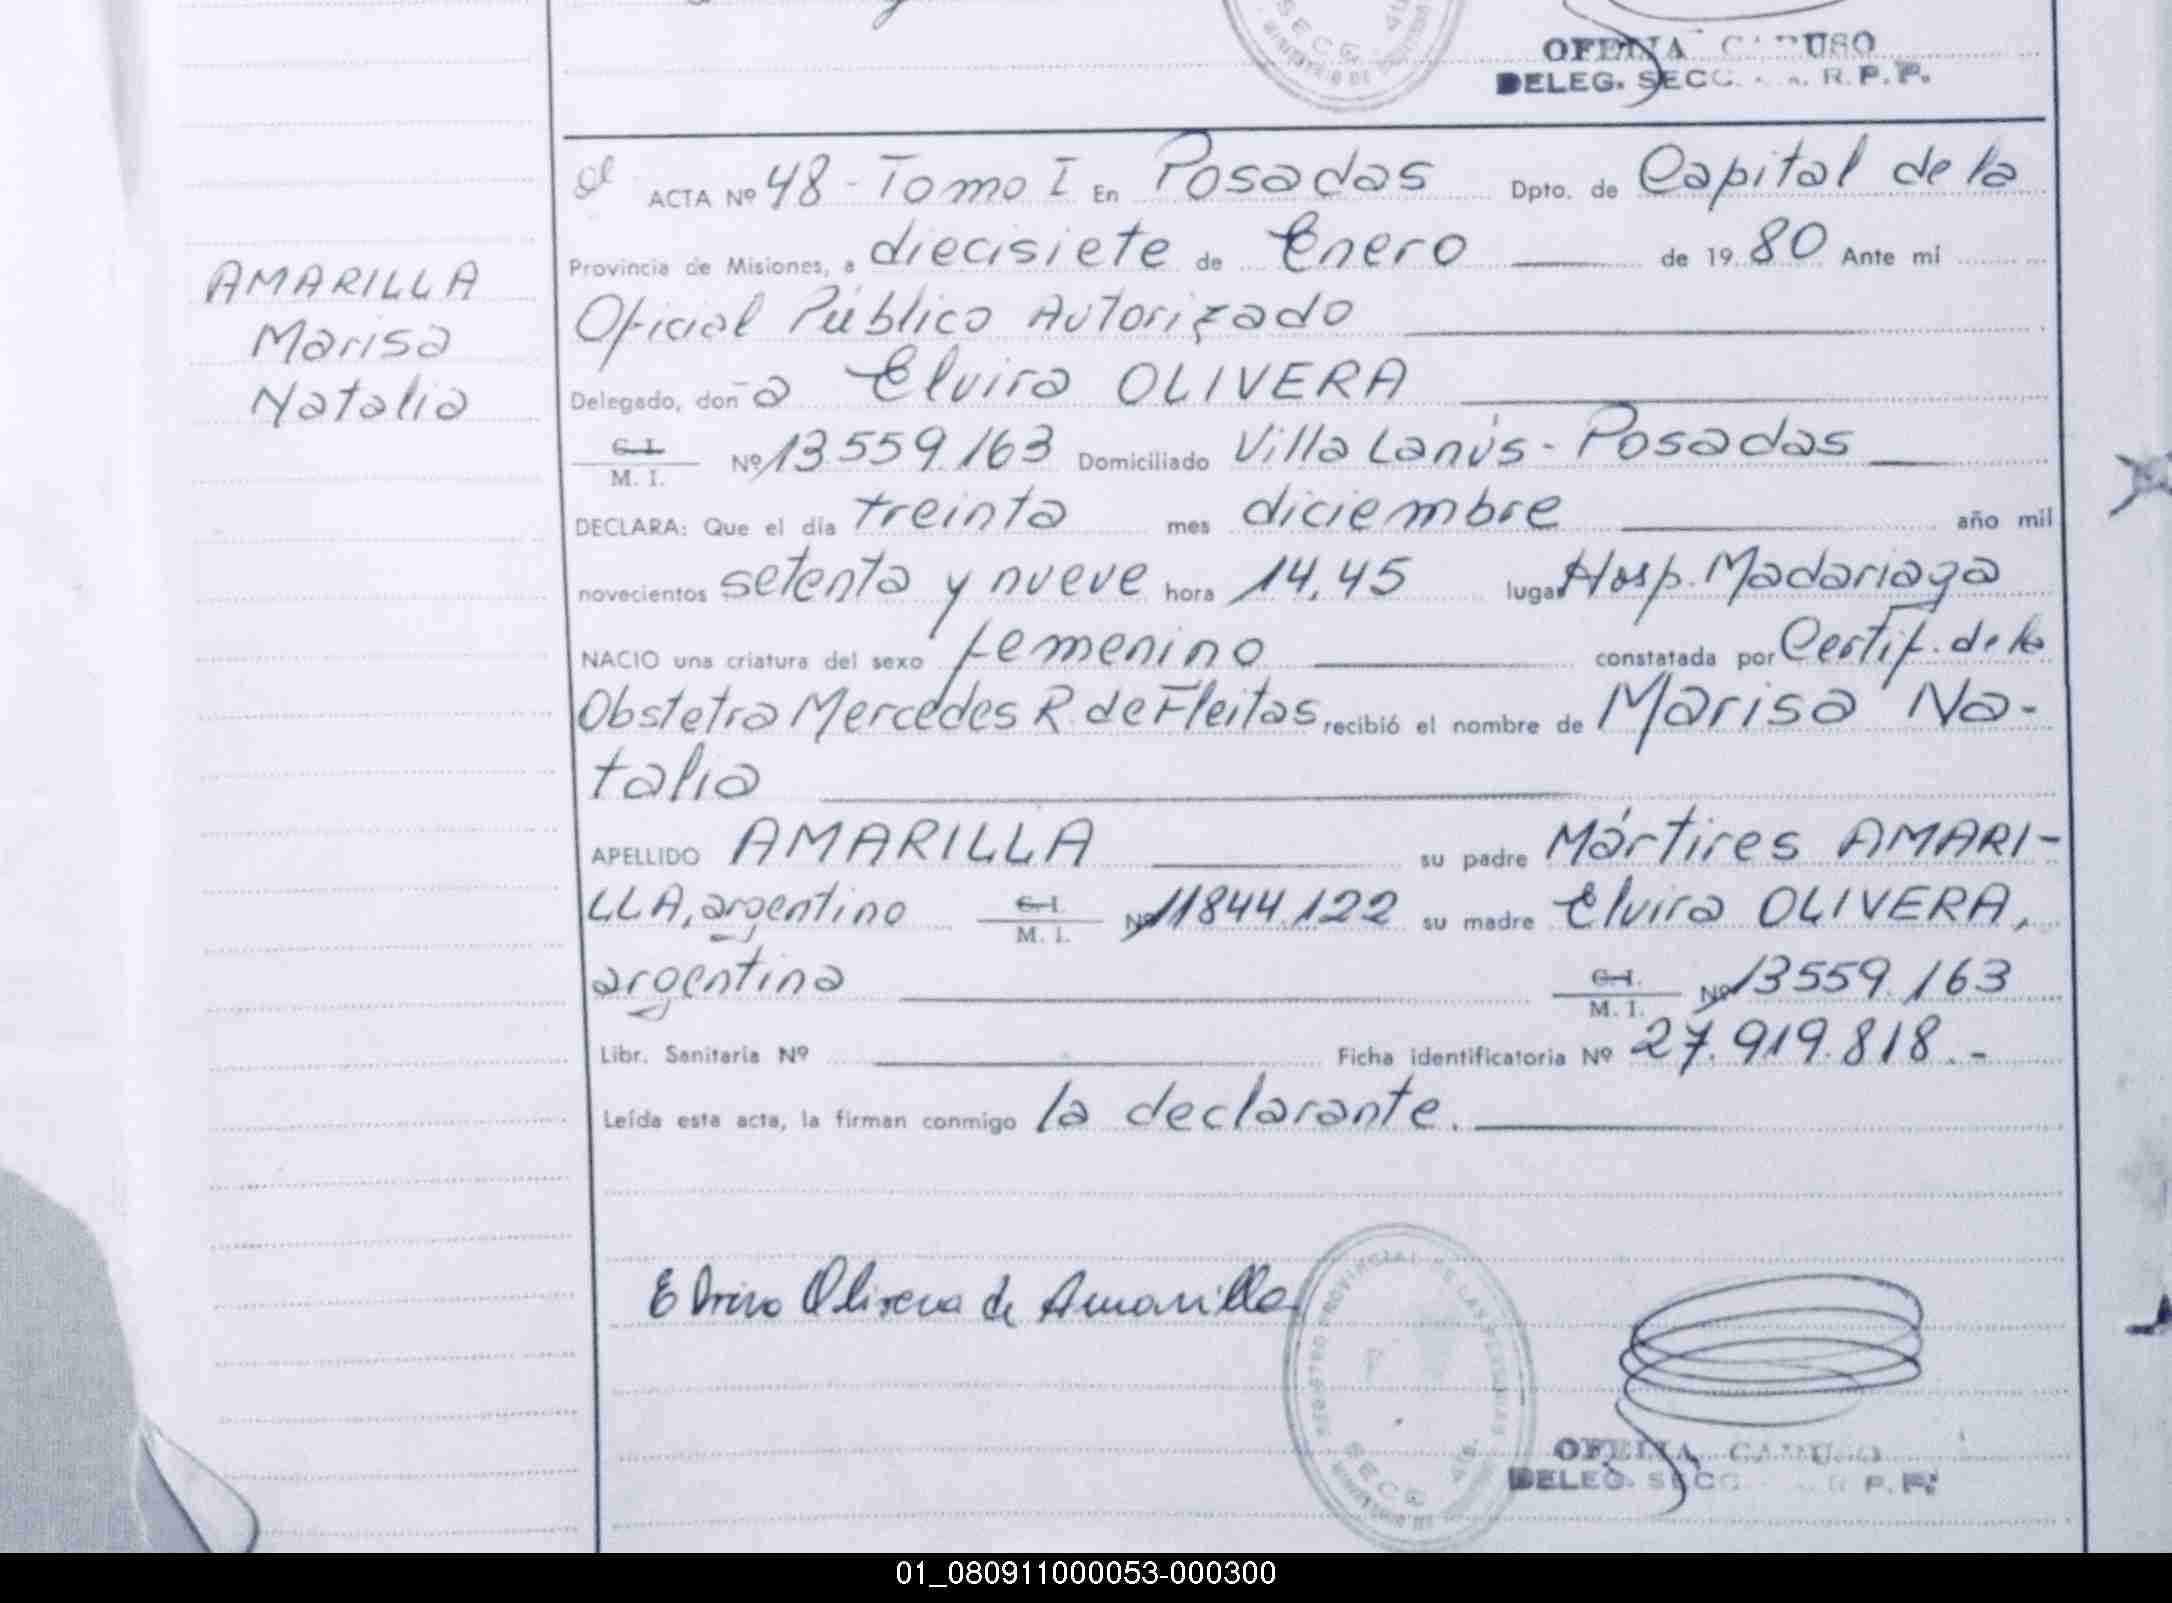 OFELIA CARUSO
DELEG. SECC. R. P. P.
ACTA Nº 48 - Tomo I En Posadas Dpto. de Capital de la
AMARILLA
Marisa
Natalia
Provincia de Misiones, a diecisiete de Enero de 1980 Ante mí
Oficial Público Autorizado
Delegado, doña Elvira OLIVERA
C. I.
M. I. Nº 13.559.163 Domiciliado Villa Lanús - Posadas
DECLARA: Que el día treinta mes diciembre año mil
novecientos setenta y nueve hora 14,45 lugar Hosp. Madariaga
NACIO una criatura del sexo femenino constatada por Certif. de la
Obstetra Mercedes R. de Fleitas recibió el nombre de Marisa Na-
talia
APELLIDO AMARILLA su padre Mártires AMARI-
LLA, argentino C. I. M. I. Nº 11844.122 su madre Elvira OLIVERA,
argentina C. I. M. I. Nº 13559.163
Libr. Sanitaria Nº Ficha identificatoria Nº 27.919.818.-
Leída esta acta, la firman conmigo la declarante.
Elvira Olivera de Amarilla
REGISTRO PROVINCIAL DE LAS PERSONAS
SECC. 4ta.
MINISTERIO DE
OFELIA CARUSO
DELEG. SECC. R. P. P.
01_080911000053-000300